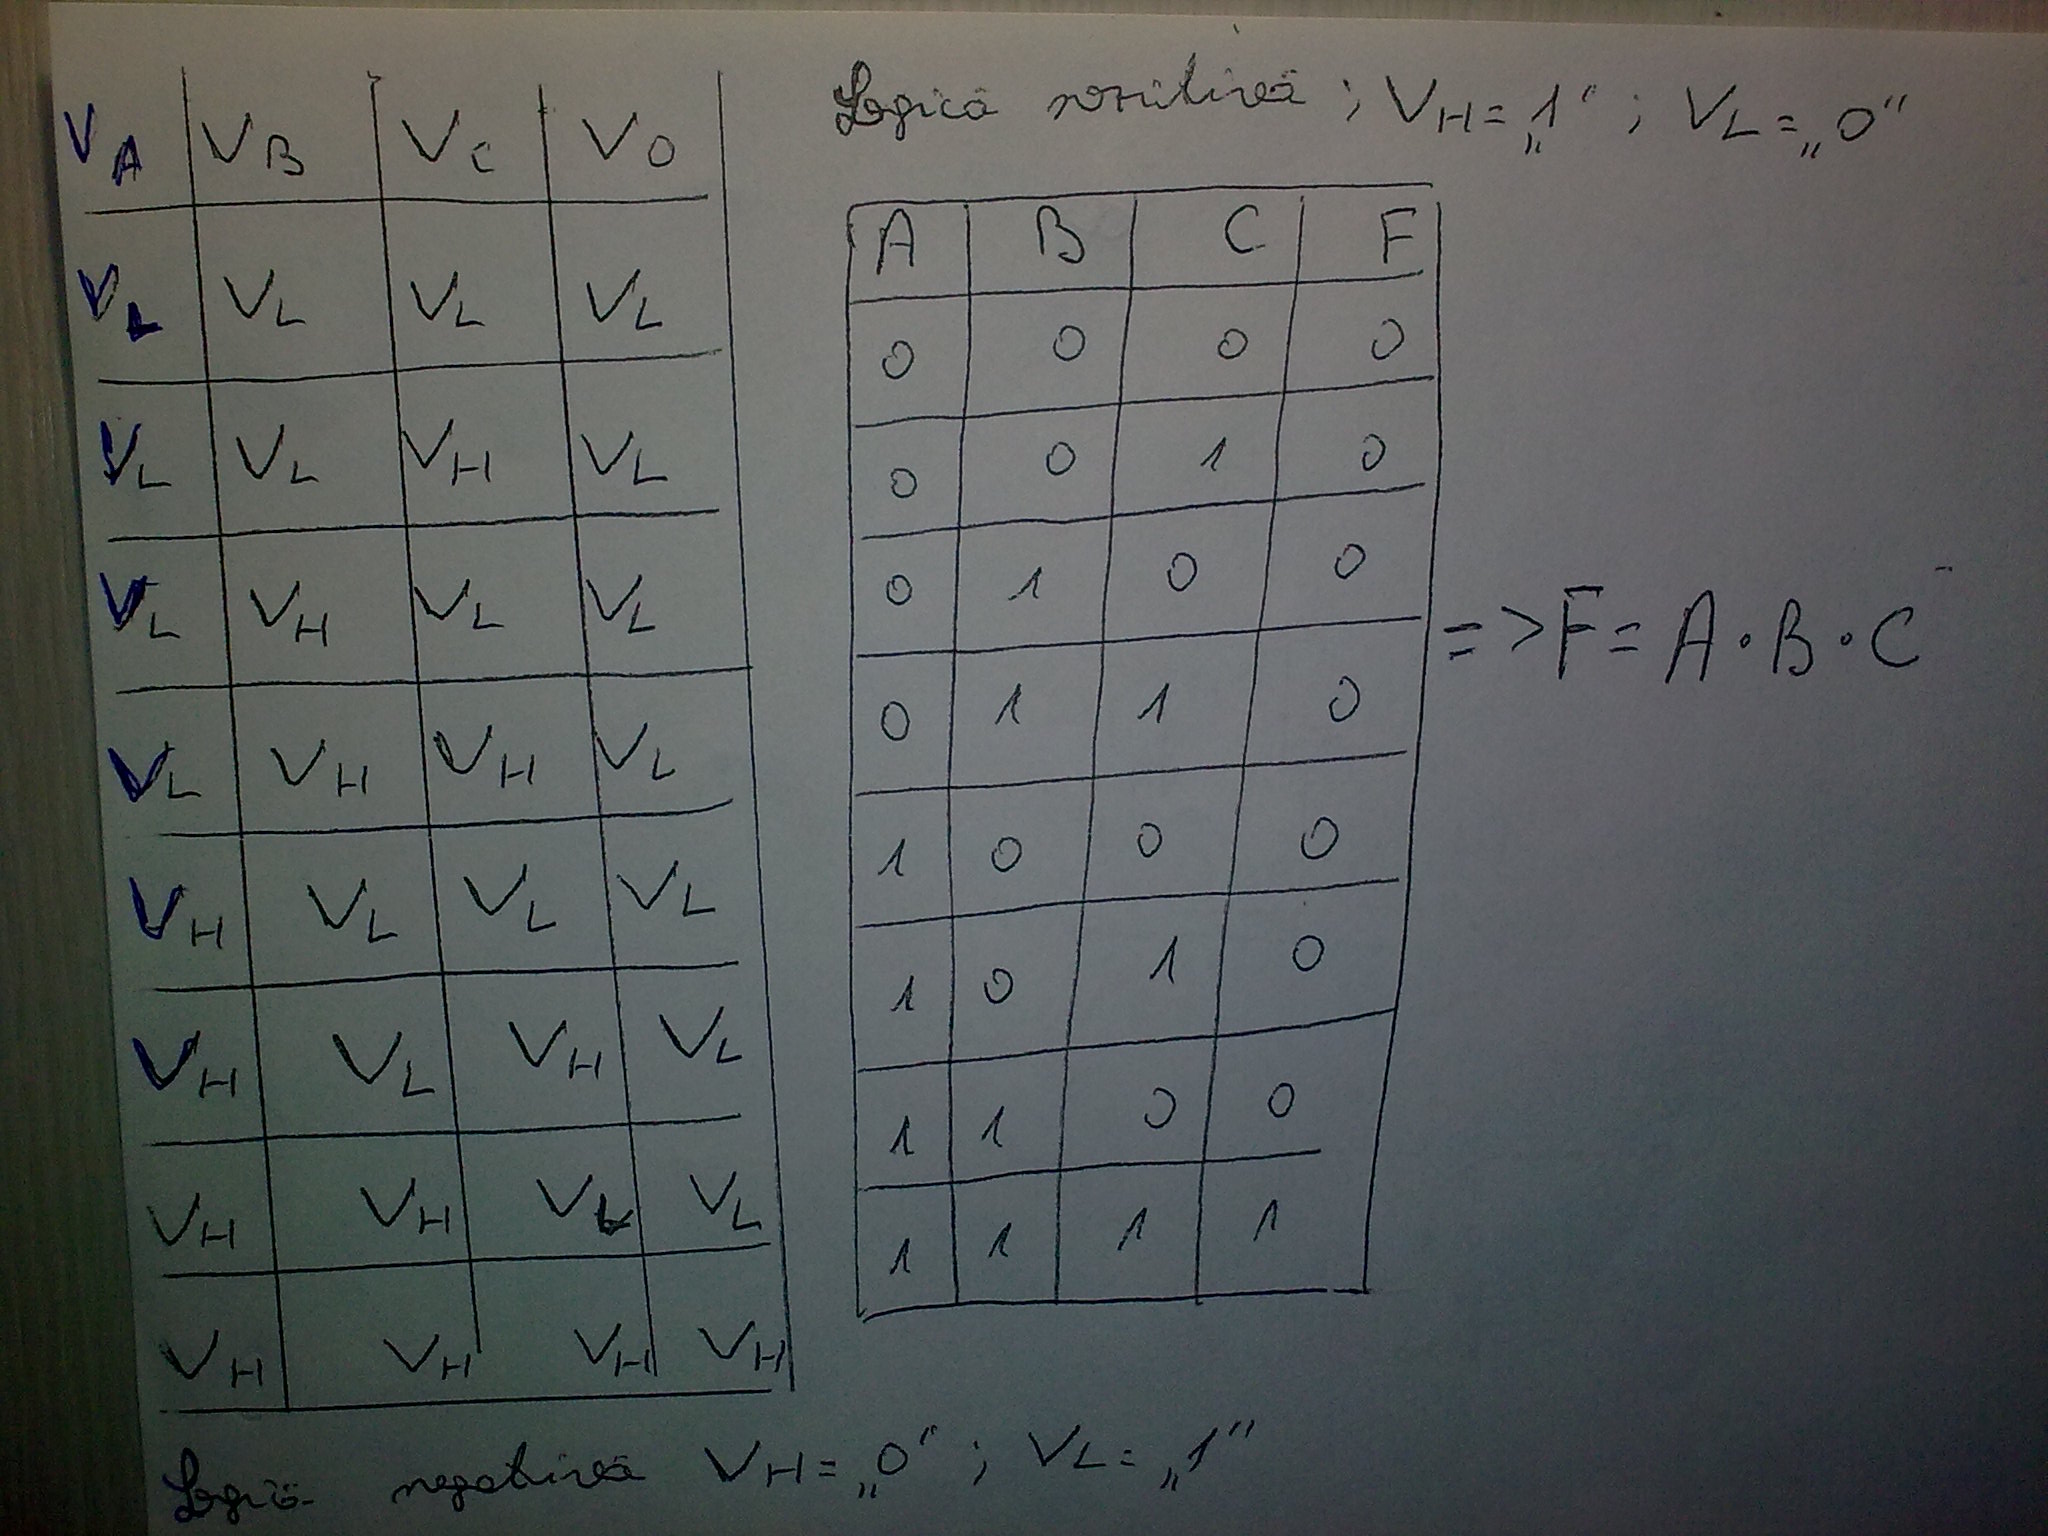 V_A V_B V_C V_O
V_L V_L V_L V_L
V_L V_L V_H V_L
V_L V_H V_L V_L
V_L V_H V_H V_L
V_H V_L V_L V_L
V_H V_L V_H V_L
V_H V_H V_L V_L
V_H V_H V_H V_H
Logică pozitivă ; V_H = „1" ; V_L = „0"
A B C F
0 0 0 0
0 0 1 0
0 1 0 0
0 1 1 0
1 0 0 0
1 0 1 0
1 1 0 0
1 1 1 1
=> F = A · B · C
Logică negativă V_H = „0" ; V_L = „1"